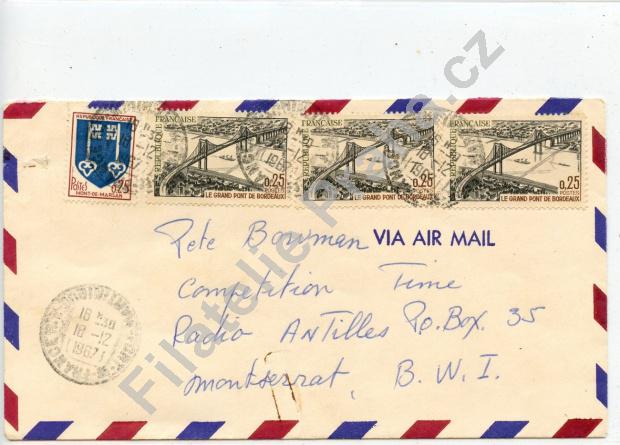 REPUBLIQUE FRANCAISE
POSTES 0,25
MONT-DE-MARSAN
REPUBLIQUE FRANÇAISE
0,25
POSTES
LE GRAND PONT DE BORDEAUX
REPUBLIQUE FRANÇAISE
0,25
POSTES
LE GRAND PONT DE BORDEAUX
REPUBLIQUE FRANÇAISE
0,25
POSTES
LE GRAND PONT DE BORDEAUX
VIA AIR MAIL
Pete Bowman
Competition Time
Radio ANTilles P.O. Box. 35
montserrat, B. W. I.
16 H30
18-12
1967
FRANCE
Filatelie Praha.cz